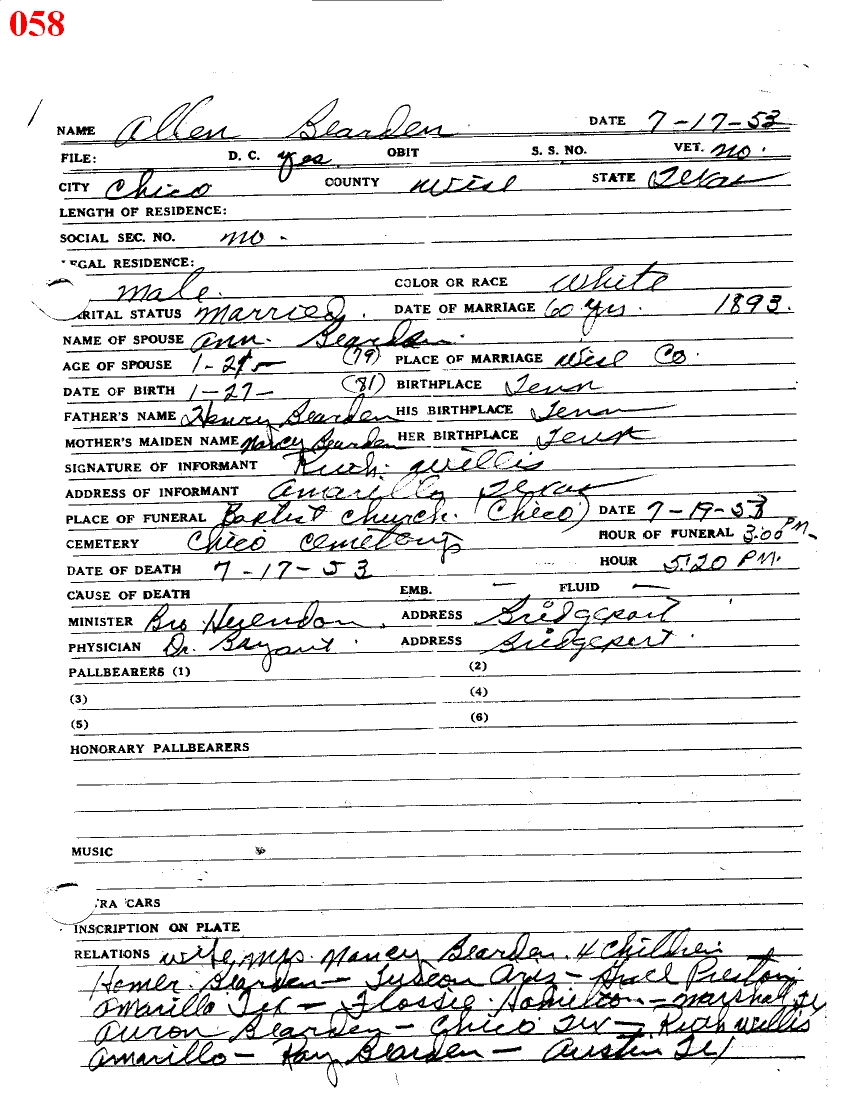 058
NAME Allen Bearden DATE 7-17-53
FILE: D. C. yes OBIT S. S. NO. VET. no.
CITY Chico COUNTY Wise STATE Texas
LENGTH OF RESIDENCE:
SOCIAL SEC. NO. no -
EGAL RESIDENCE:
male. COLOR OR RACE White
RITAL STATUS married. DATE OF MARRIAGE 60 yrs. 1893.
NAME OF SPOUSE Ann. Bearden.
AGE OF SPOUSE (79) PLACE OF MARRIAGE Wise Co.
DATE OF BIRTH 1-27- (81) BIRTHPLACE Tenn
FATHER'S NAME Henry Bearden HIS BIRTHPLACE Tenn
MOTHER'S MAIDEN NAME Nancy Bearden HER BIRTHPLACE
SIGNATURE OF INFORMANT Ruth Willis
ADDRESS OF INFORMANT Amarillo Texas
PLACE OF FUNERAL Baptist Church. (Chico) DATE 7-19-53
CEMETERY Chico Cemetery HOUR OF FUNERAL 3:00 PM-
DATE OF DEATH 7-17-53 HOUR 5:20 PM.
CAUSE OF DEATH EMB. — FLUID —
MINISTER Bro Herendon. ADDRESS Bridgeport
PHYSICIAN Dr. Bryant. ADDRESS Bridgeport.
PALLBEARERS (1) (2)
(3) (4)
(5) (6)
HONORARY PALLBEARERS
MUSIC
RA CARS
INSCRIPTION ON PLATE
RELATIONS wife, Mrs. Nancy Bearden. & Children
Homer. Bearden - Tuscon Ariz - Preston
Amarillo Tex - Flossie. Hamilton - Marshall
Bearden - Chico Tex - Ruth Willis
Amarillo - Ray Bearden - Austin Tex